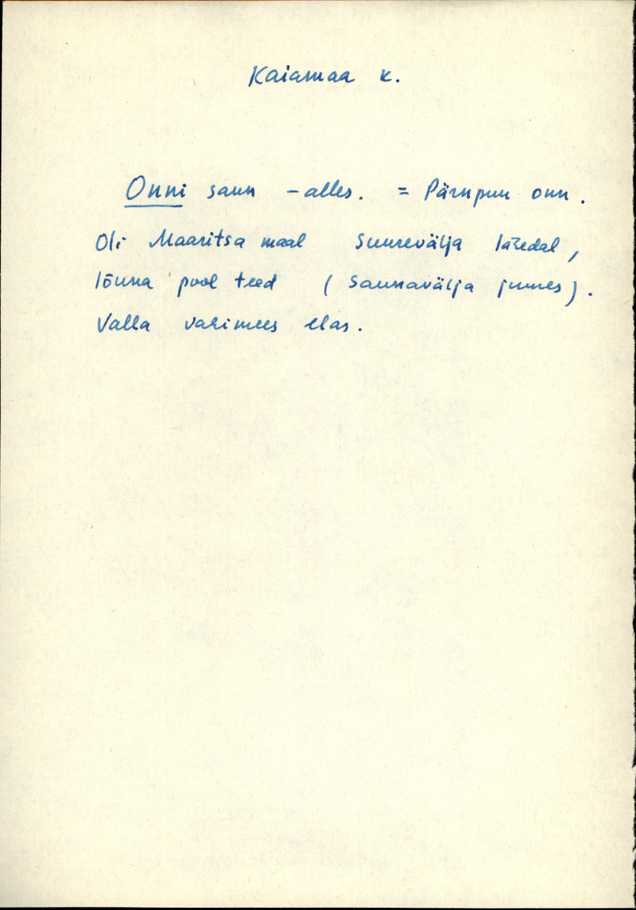 Kaiamaa k.
Onni saun - alles. = Pärnpuu onn.
Oli Maaritsa maal Suurevälja lähedal,
lõuna pool teed (Saunavälja juures).
Valla vahimees elas.